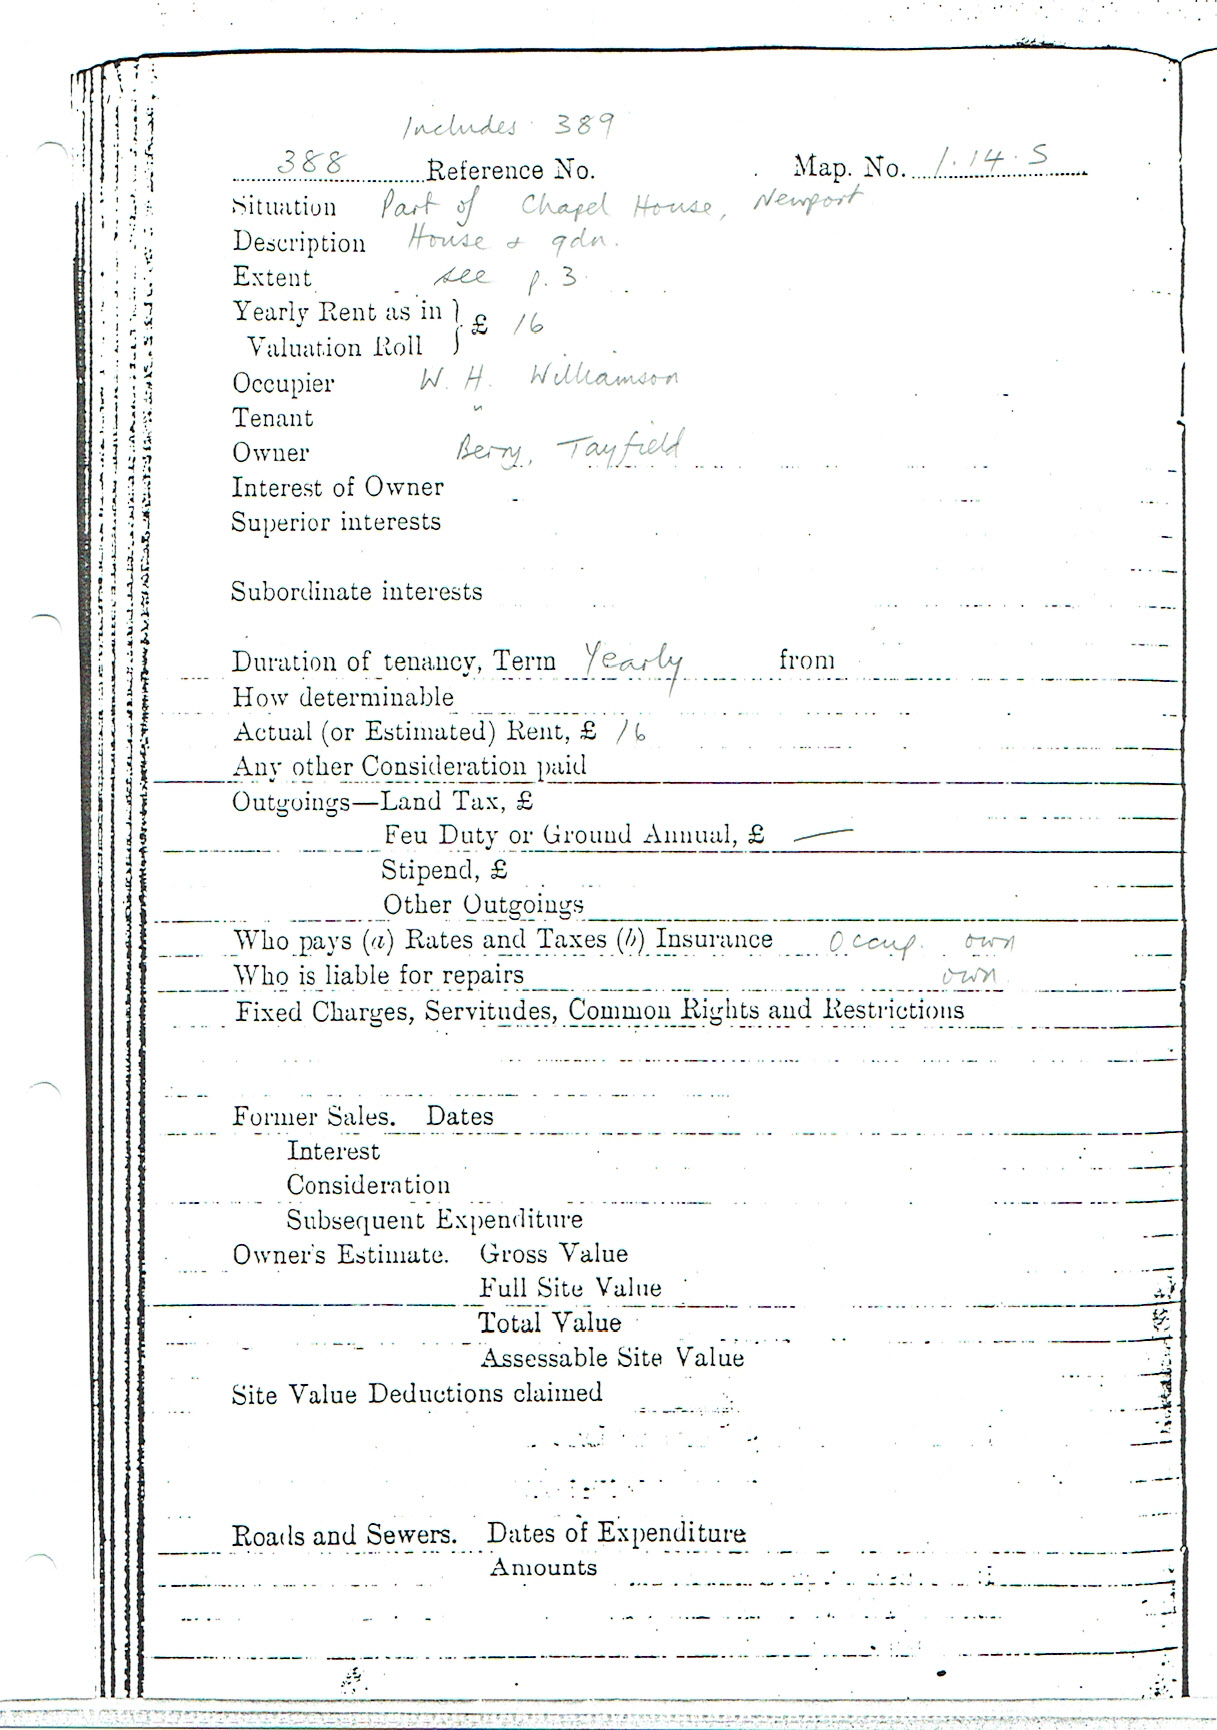 Includes 389
388 Reference No. Map. No. 1.14.S
Situation Part of Chapel House, Newport
Description House & gdn.
Extent see p. 3
Yearly Rent as in
Valuation Roll } £ 16
Occupier W. H. Williamson
Tenant "
Owner Berry, Tayfield
Interest of Owner
Superior interests
Subordinate interests
Duration of tenancy, Term Yearly from
How determinable
Actual (or Estimated) Rent, £ 16
Any other Consideration paid
Outgoings—Land Tax, £
Feu Duty or Ground Annual, £ —
Stipend, £
Other Outgoings
Who pays (a) Rates and Taxes (b) Insurance Occup. own
Who is liable for repairs own
Fixed Charges, Servitudes, Common Rights and Restrictions
Former Sales. Dates
Interest
Consideration
Subsequent Expenditure
Owner's Estimate. Gross Value
Full Site Value
Total Value
Assessable Site Value
Site Value Deductions claimed
Roads and Sewers. Dates of Expenditure
Amounts